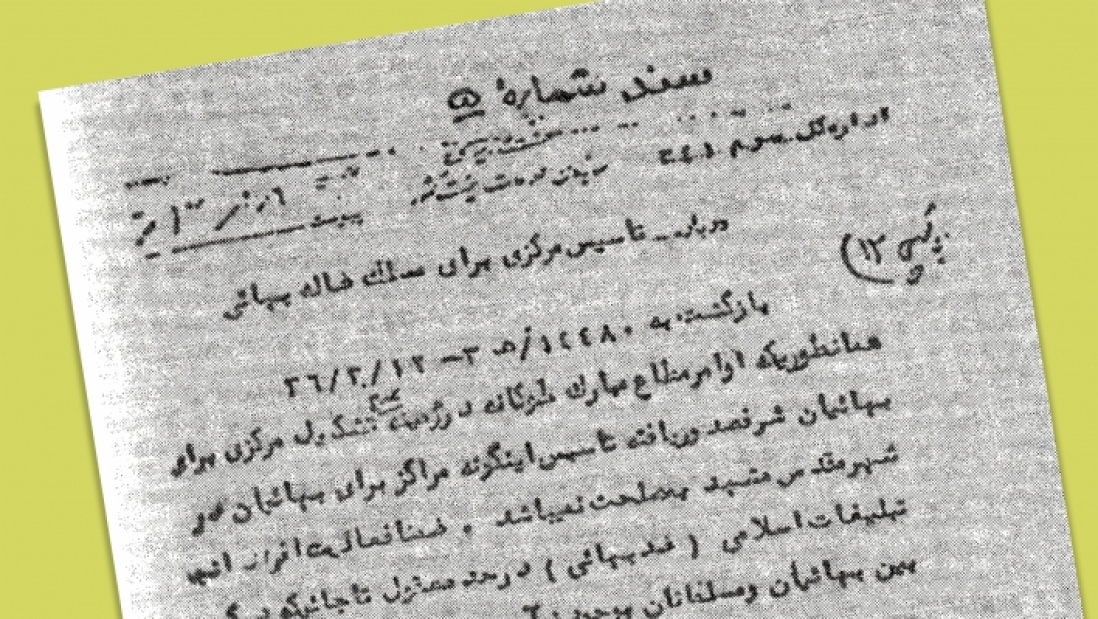 سند شمارهٔ ۵
اداره کل سوم ۳۴۱
پیوست
درباره تاسیس مرکزی برای مسلک ضاله بهائی
بازگشت به ۱۴۴۸۰/ ۵ ۳ – ۳۶/۲/۱۲
همانطوریکه اوامر مطاع مبارک ملوکانه در زمینه تشکیل مرکزی برای
بهائیان شرفصدور یافته تاسیس اینگونه مراکز برای بهائیان در
شهر مقدس مشهد بمصلحت نمیباشد . ضمنا فعالیت افراد انجمن
تبلیغات اسلامی ( ضد بهائی ) در حد معقول تا جائیکه
بین بهائیان و مسلمانان بوجود